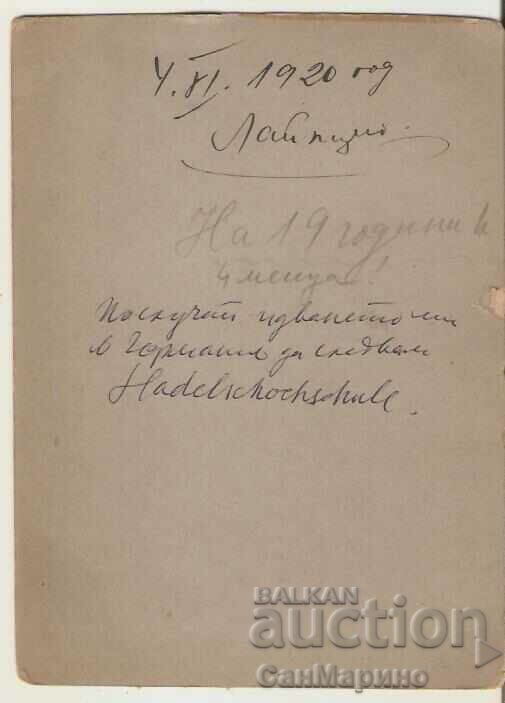 4.XI. 1920 год
Лайпциг.
На 19 години и
4 месеца!
По случай идването ми
в Германия да следвам
Hadelschochschule.
BALKAN
auction
СанМарино